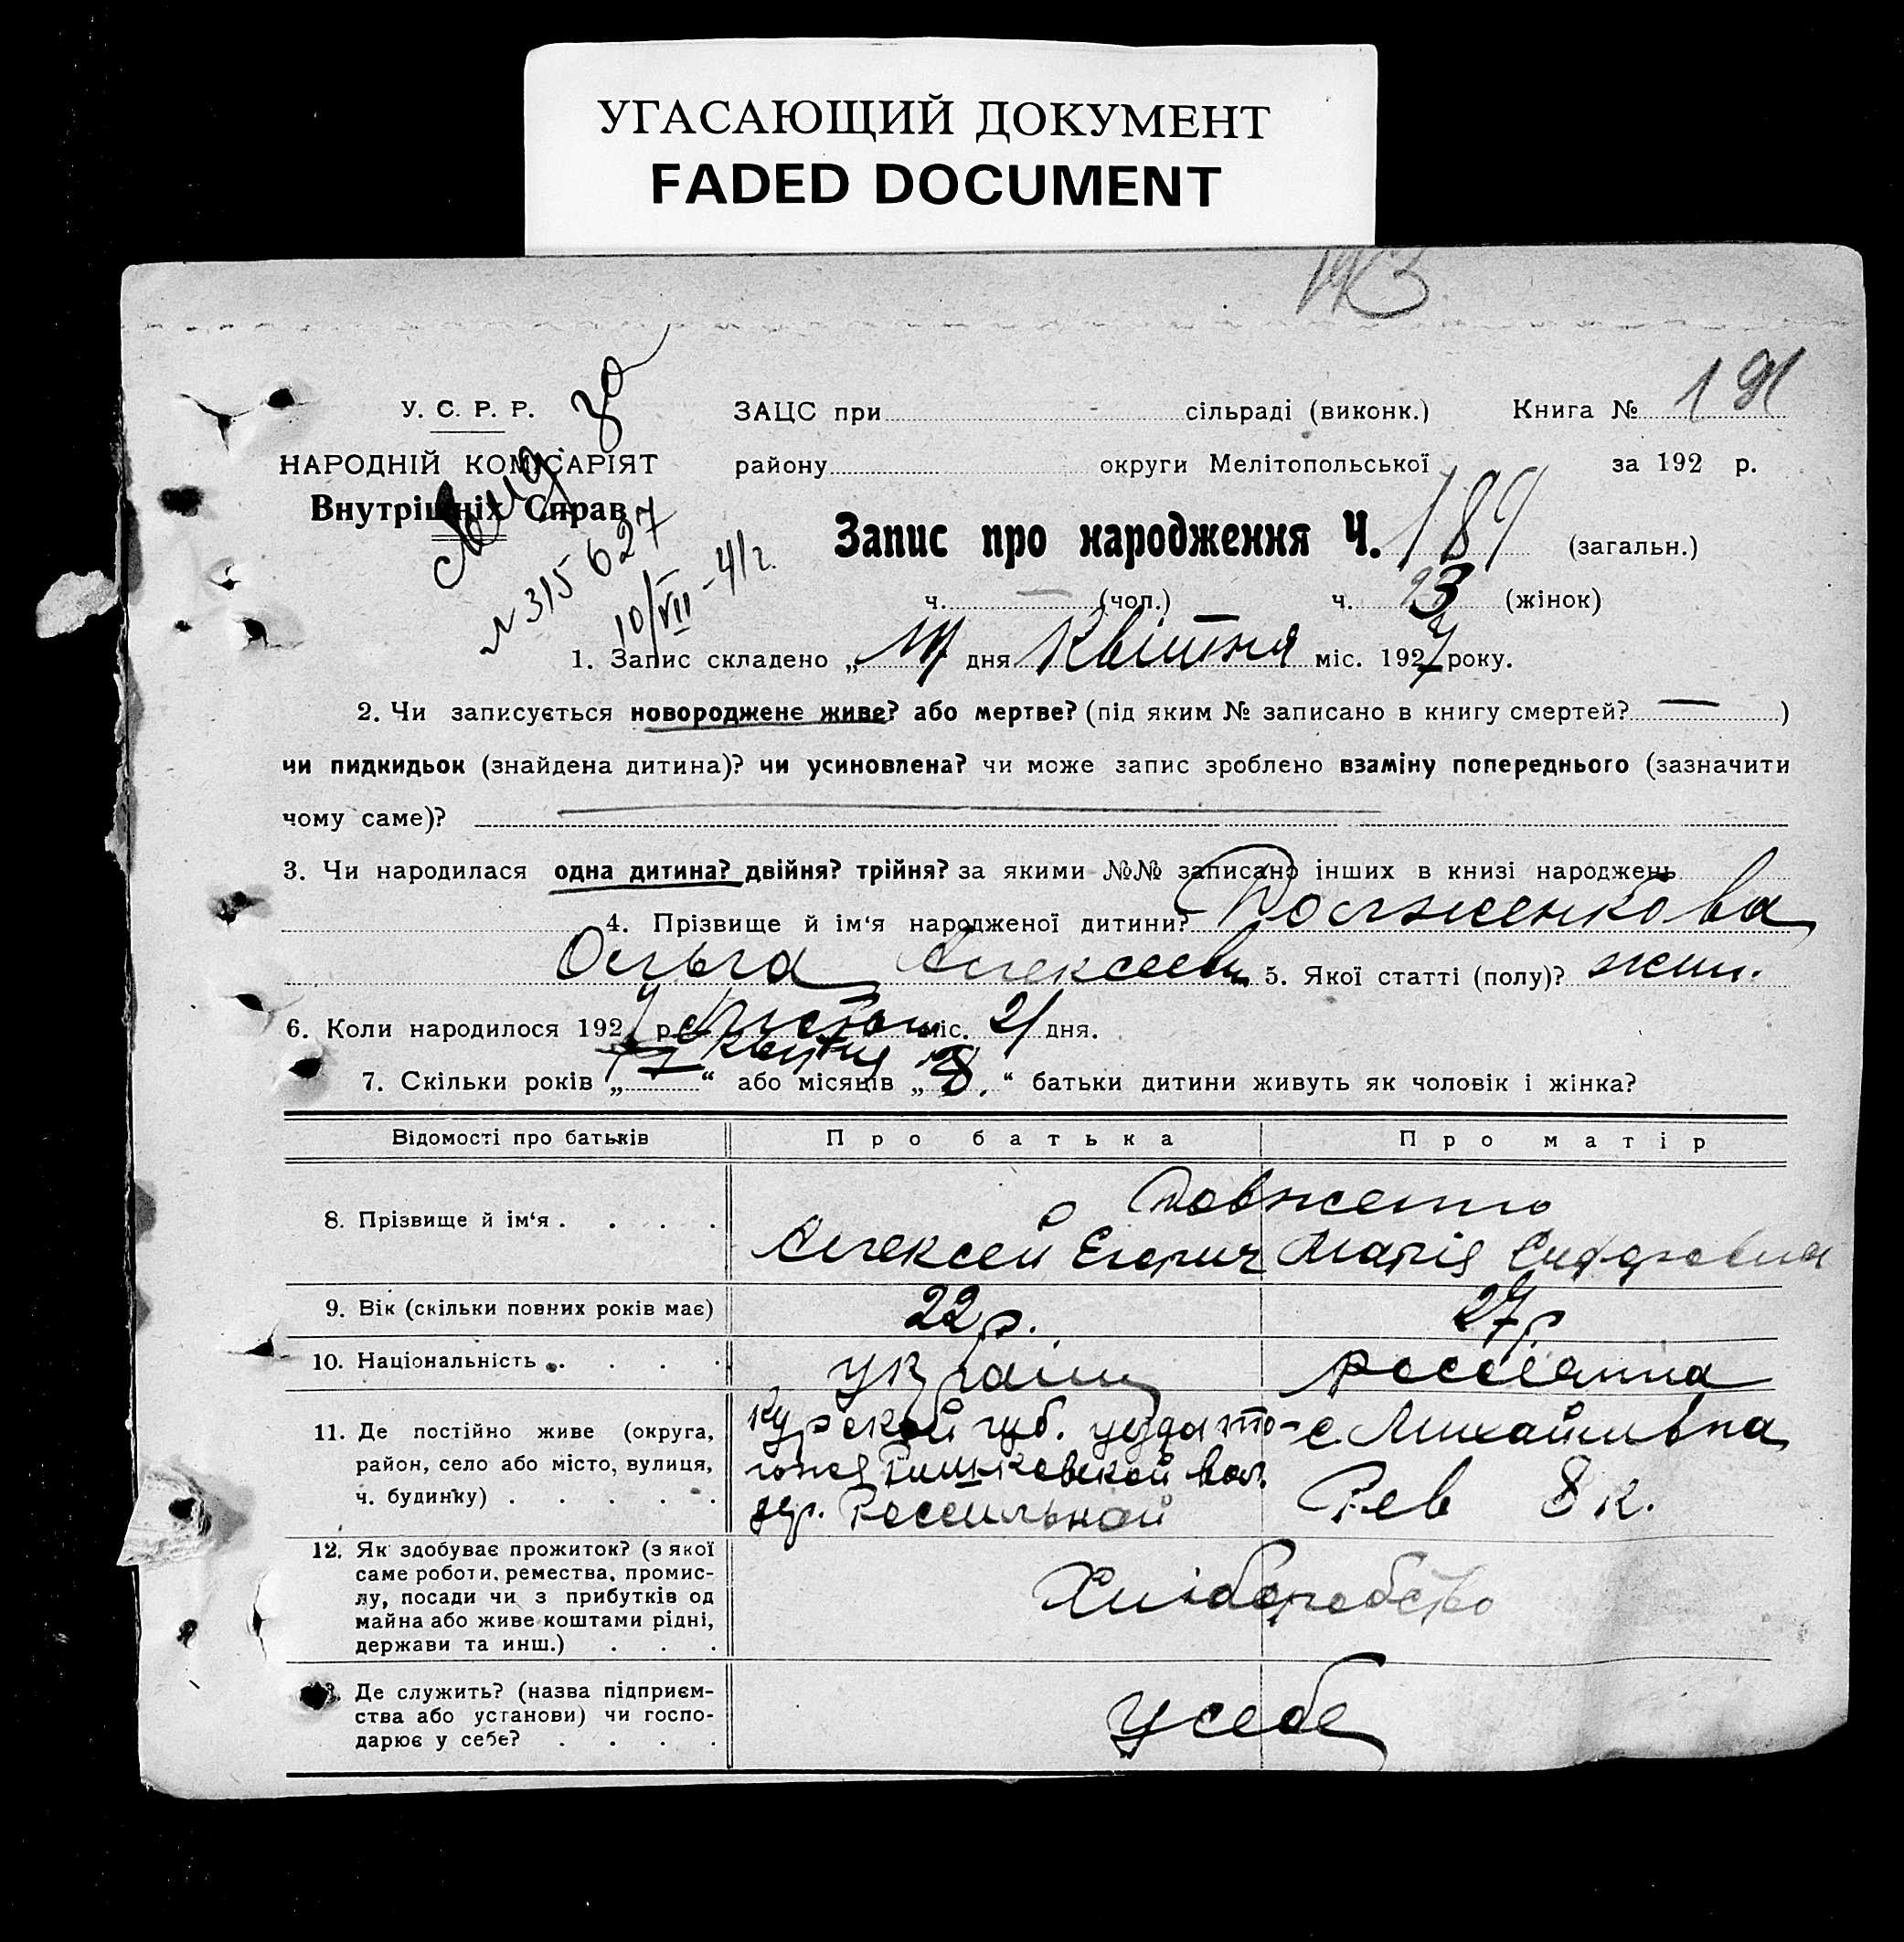 УГАСАЮЩИЙ ДОКУМЕНТ
FADED DOCUMENT
У. С. Р. Р.
ЗАЦС при сільраді (виконк.) Книга №
НАРОДНІЙ КОМІСАРІЯТ
району округи Мелітопольської за 192 р.
Внутрішніх Справ
№ 315627
10/VII-41 г.
Запис про народження Ч. 189 (загальн.)
ч. — (чол.) ч. 93 (жінок)
1. Запис складено „ дня Квітня міс. 1927 року.
2. Чи записується новороджене живе? або мертве? (під яким № записано в книгу смертей? — )
чи пидкидьок (знайдена дитина)? чи усиновлена? чи може запис зроблено взаміну попереднього (зазначити
чому саме)?
3. Чи народилася одна дитина? двійня? трійня? за якими №№ записано інших в книзі народжень
4. Прізвище й ім‘я народженої дитини? Долженкова
Ольга Алексеевн 5. Якої статті (полу)? жін.
6. Коли народилося 1927 р. міс. 21 дня.
квітня
7. Скільки років „ “ або місяців „ 8. “ батьки дитини живуть як чоловік і жінка?
Відомості про батьків Про батька Про матір
8. Прізвище й ім‘я . . . .
Довженко
Алексей Егорич Марія
9. Вік (скільки повних років має) 22 р. 27 р
10. Національність . . . . україн россіянка
11. Де постійно живе (округа,
район, село або місто, вулиця,
ч. будинку) . . . . .
Курской губ. уезда
вол.
дер.
с. Михайливка
Рев 8 к.
12. Як здобуває прожиток? (з якої
саме роботи, ремества, промис-
лу, посади чи з прибутків од
майна або живе коштами рідні,
держави та инш.) . . .
Хліборобство
Де служить? (назва підприєм-
ства або установи) чи госпо-
дарює у себе? . . . .
У себе